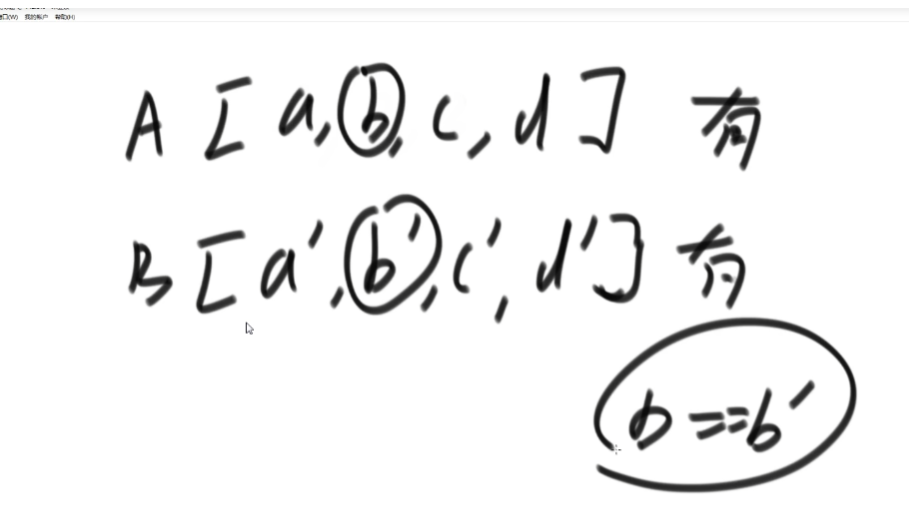 窗口(W) 我的帐户 帮助(H)
A [a, b, c, d] 有
B [a', b', c', d'] 有
b == b'